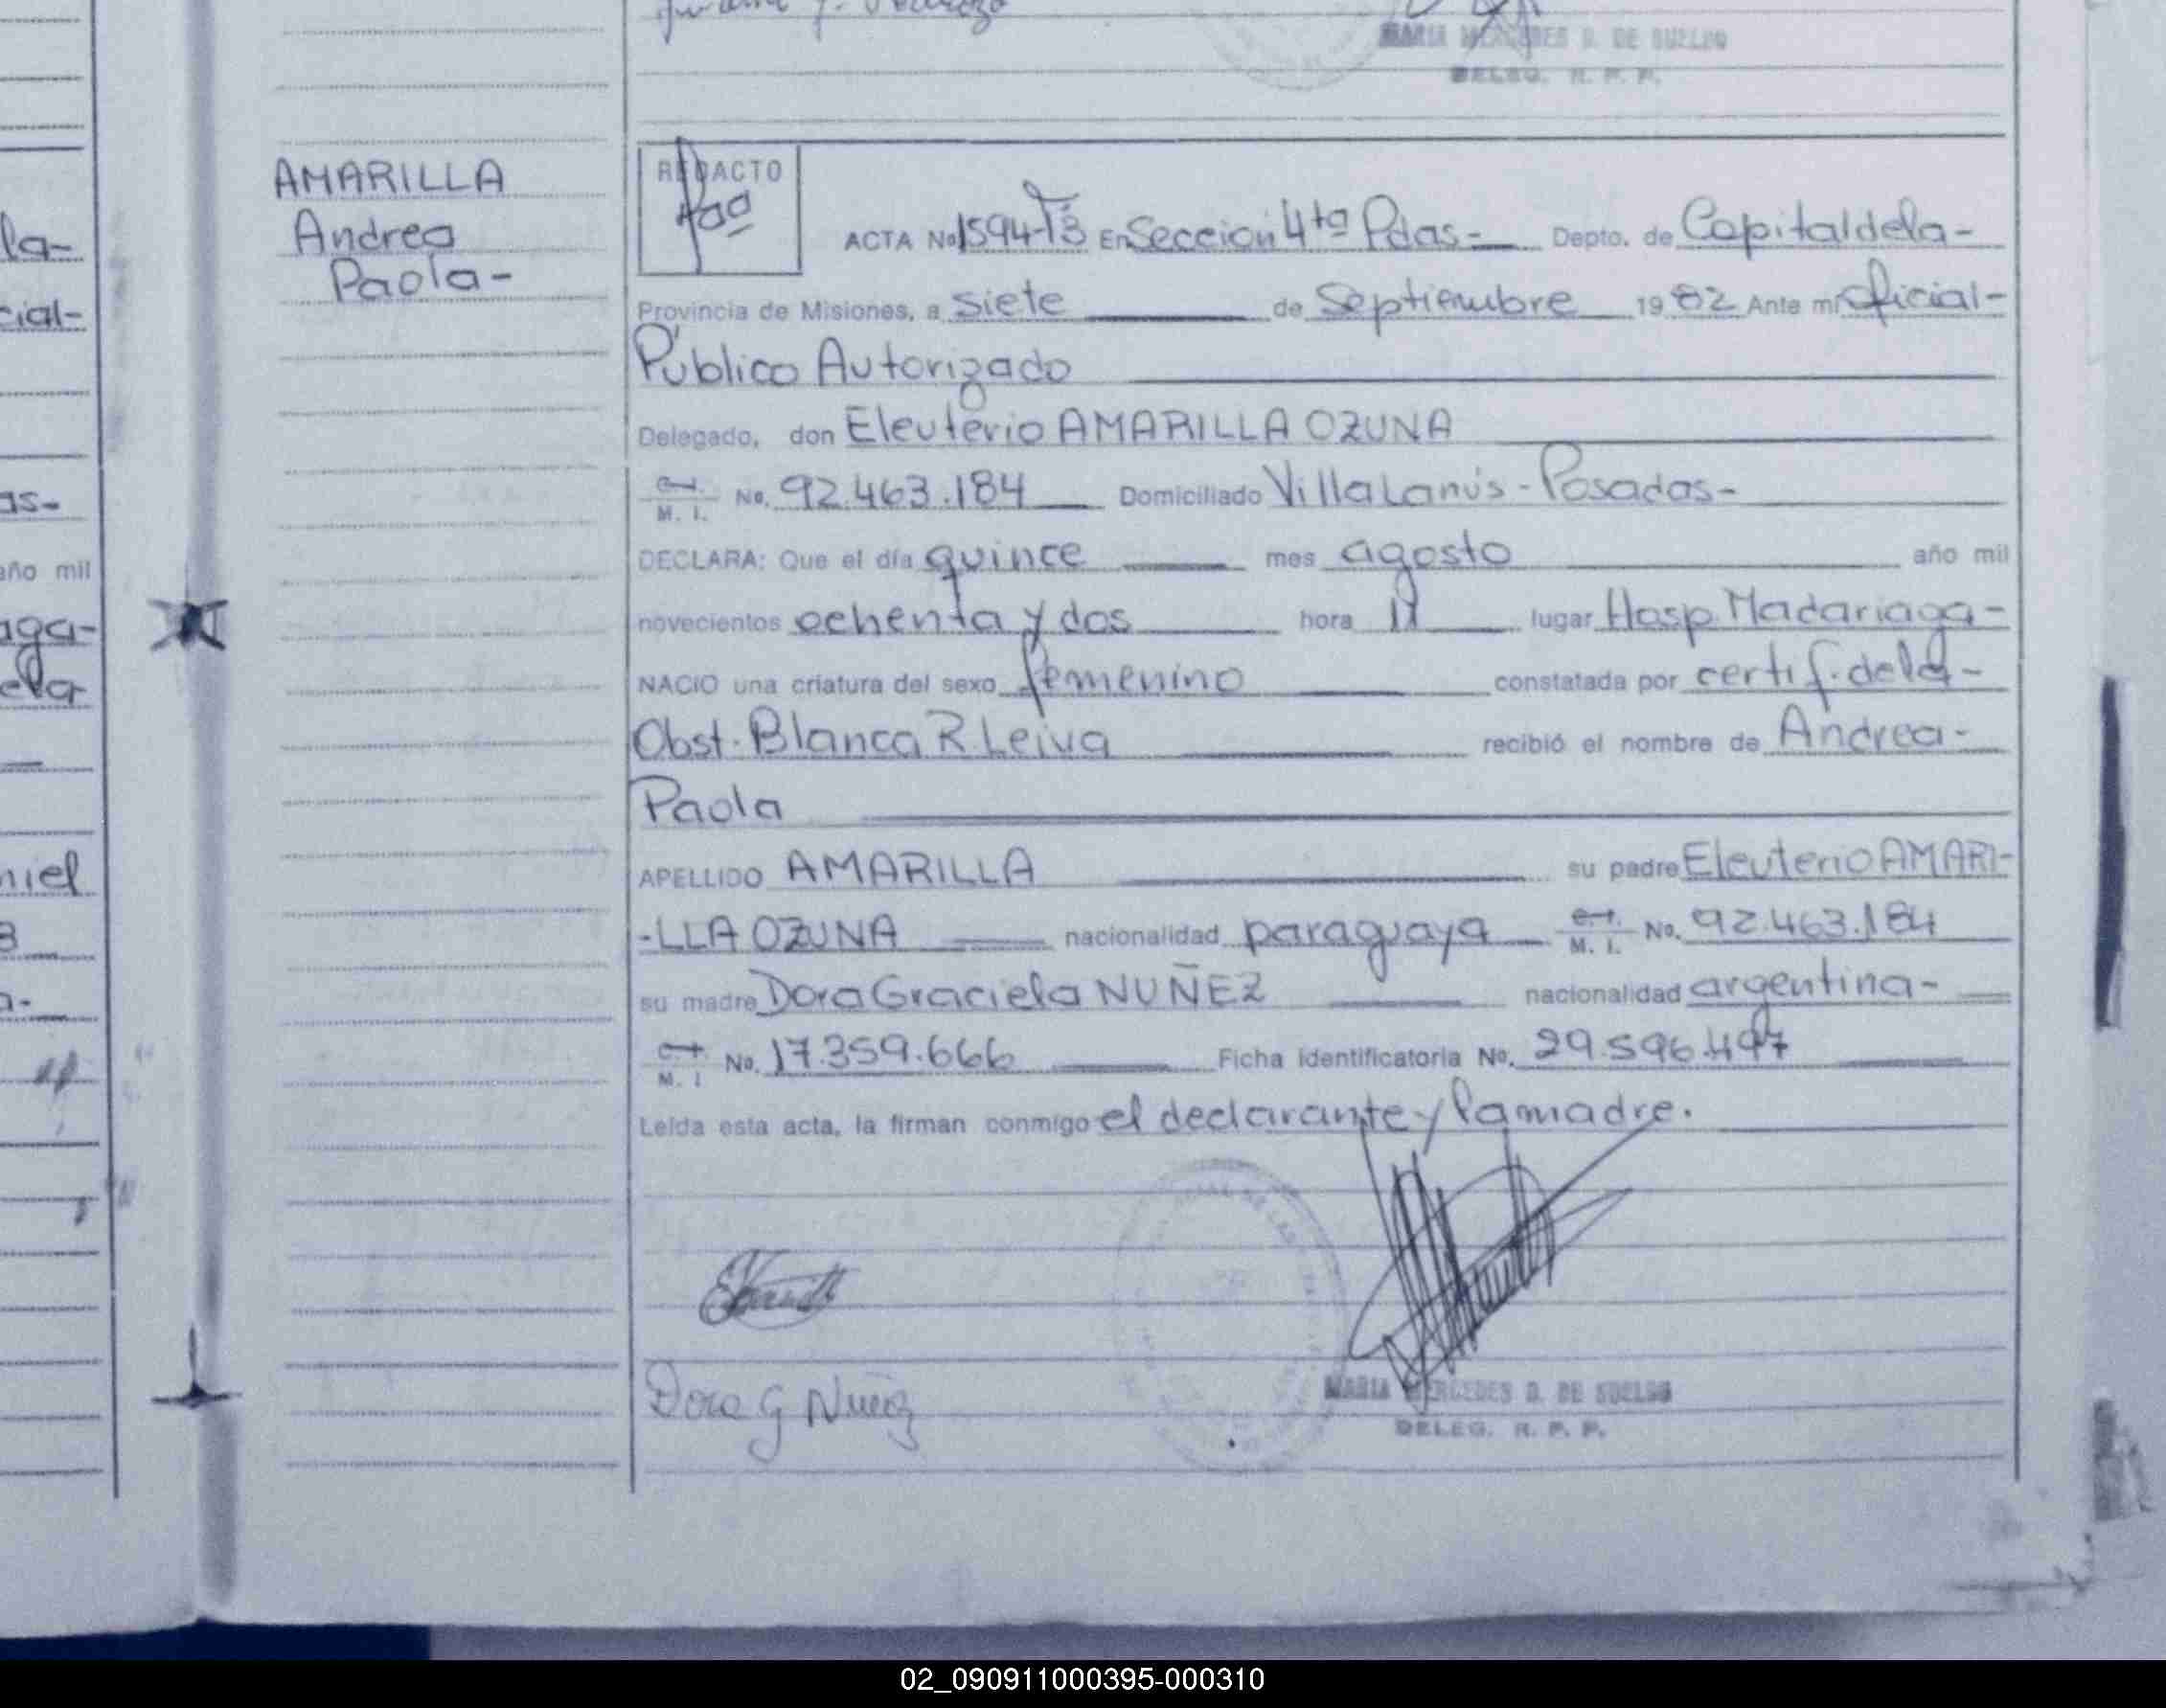 MARIA MERCEDES D. DE SUELDO
DELEG. R. P. P.
AMARILLA
Andrea
Paola-
REDACTO
ACTA No 1594-T3 En Seccion 4ta Pdas- Depto. de Capital de la-
Provincia de Misiones, a siete de Septiembre 1982 Ante mi Oficial-
Público Autorizado
Delegado, don Eleuterio AMARILLA OZUNA
M. I. No. 92.463.184 Domiciliado Villa Lanús - Posadas-
DECLARA: Que el día quince mes agosto año mil
novecientos ochenta y dos hora 11 lugar Hosp. Madariaga-
NACIO una criatura del sexo femenino constatada por certif. de la-
Obst. Blanca R. Leiva recibió el nombre de Andrea-
Paola
APELLIDO AMARILLA su padre Eleuterio AMARI-
-LLA OZUNA nacionalidad paraguaya M. I. No. 92.463.184
su madre Dora Graciela NUÑEZ nacionalidad argentina-
M. I No. 17.359.666 Ficha identificatoria No. 29.596.497
Leída esta acta, la firman conmigo el declarante y la madre.
Dora G Nuñez
MARIA MERCEDES D. DE SUELDO
DELEG. R. P. P.
02_090911000395-000310